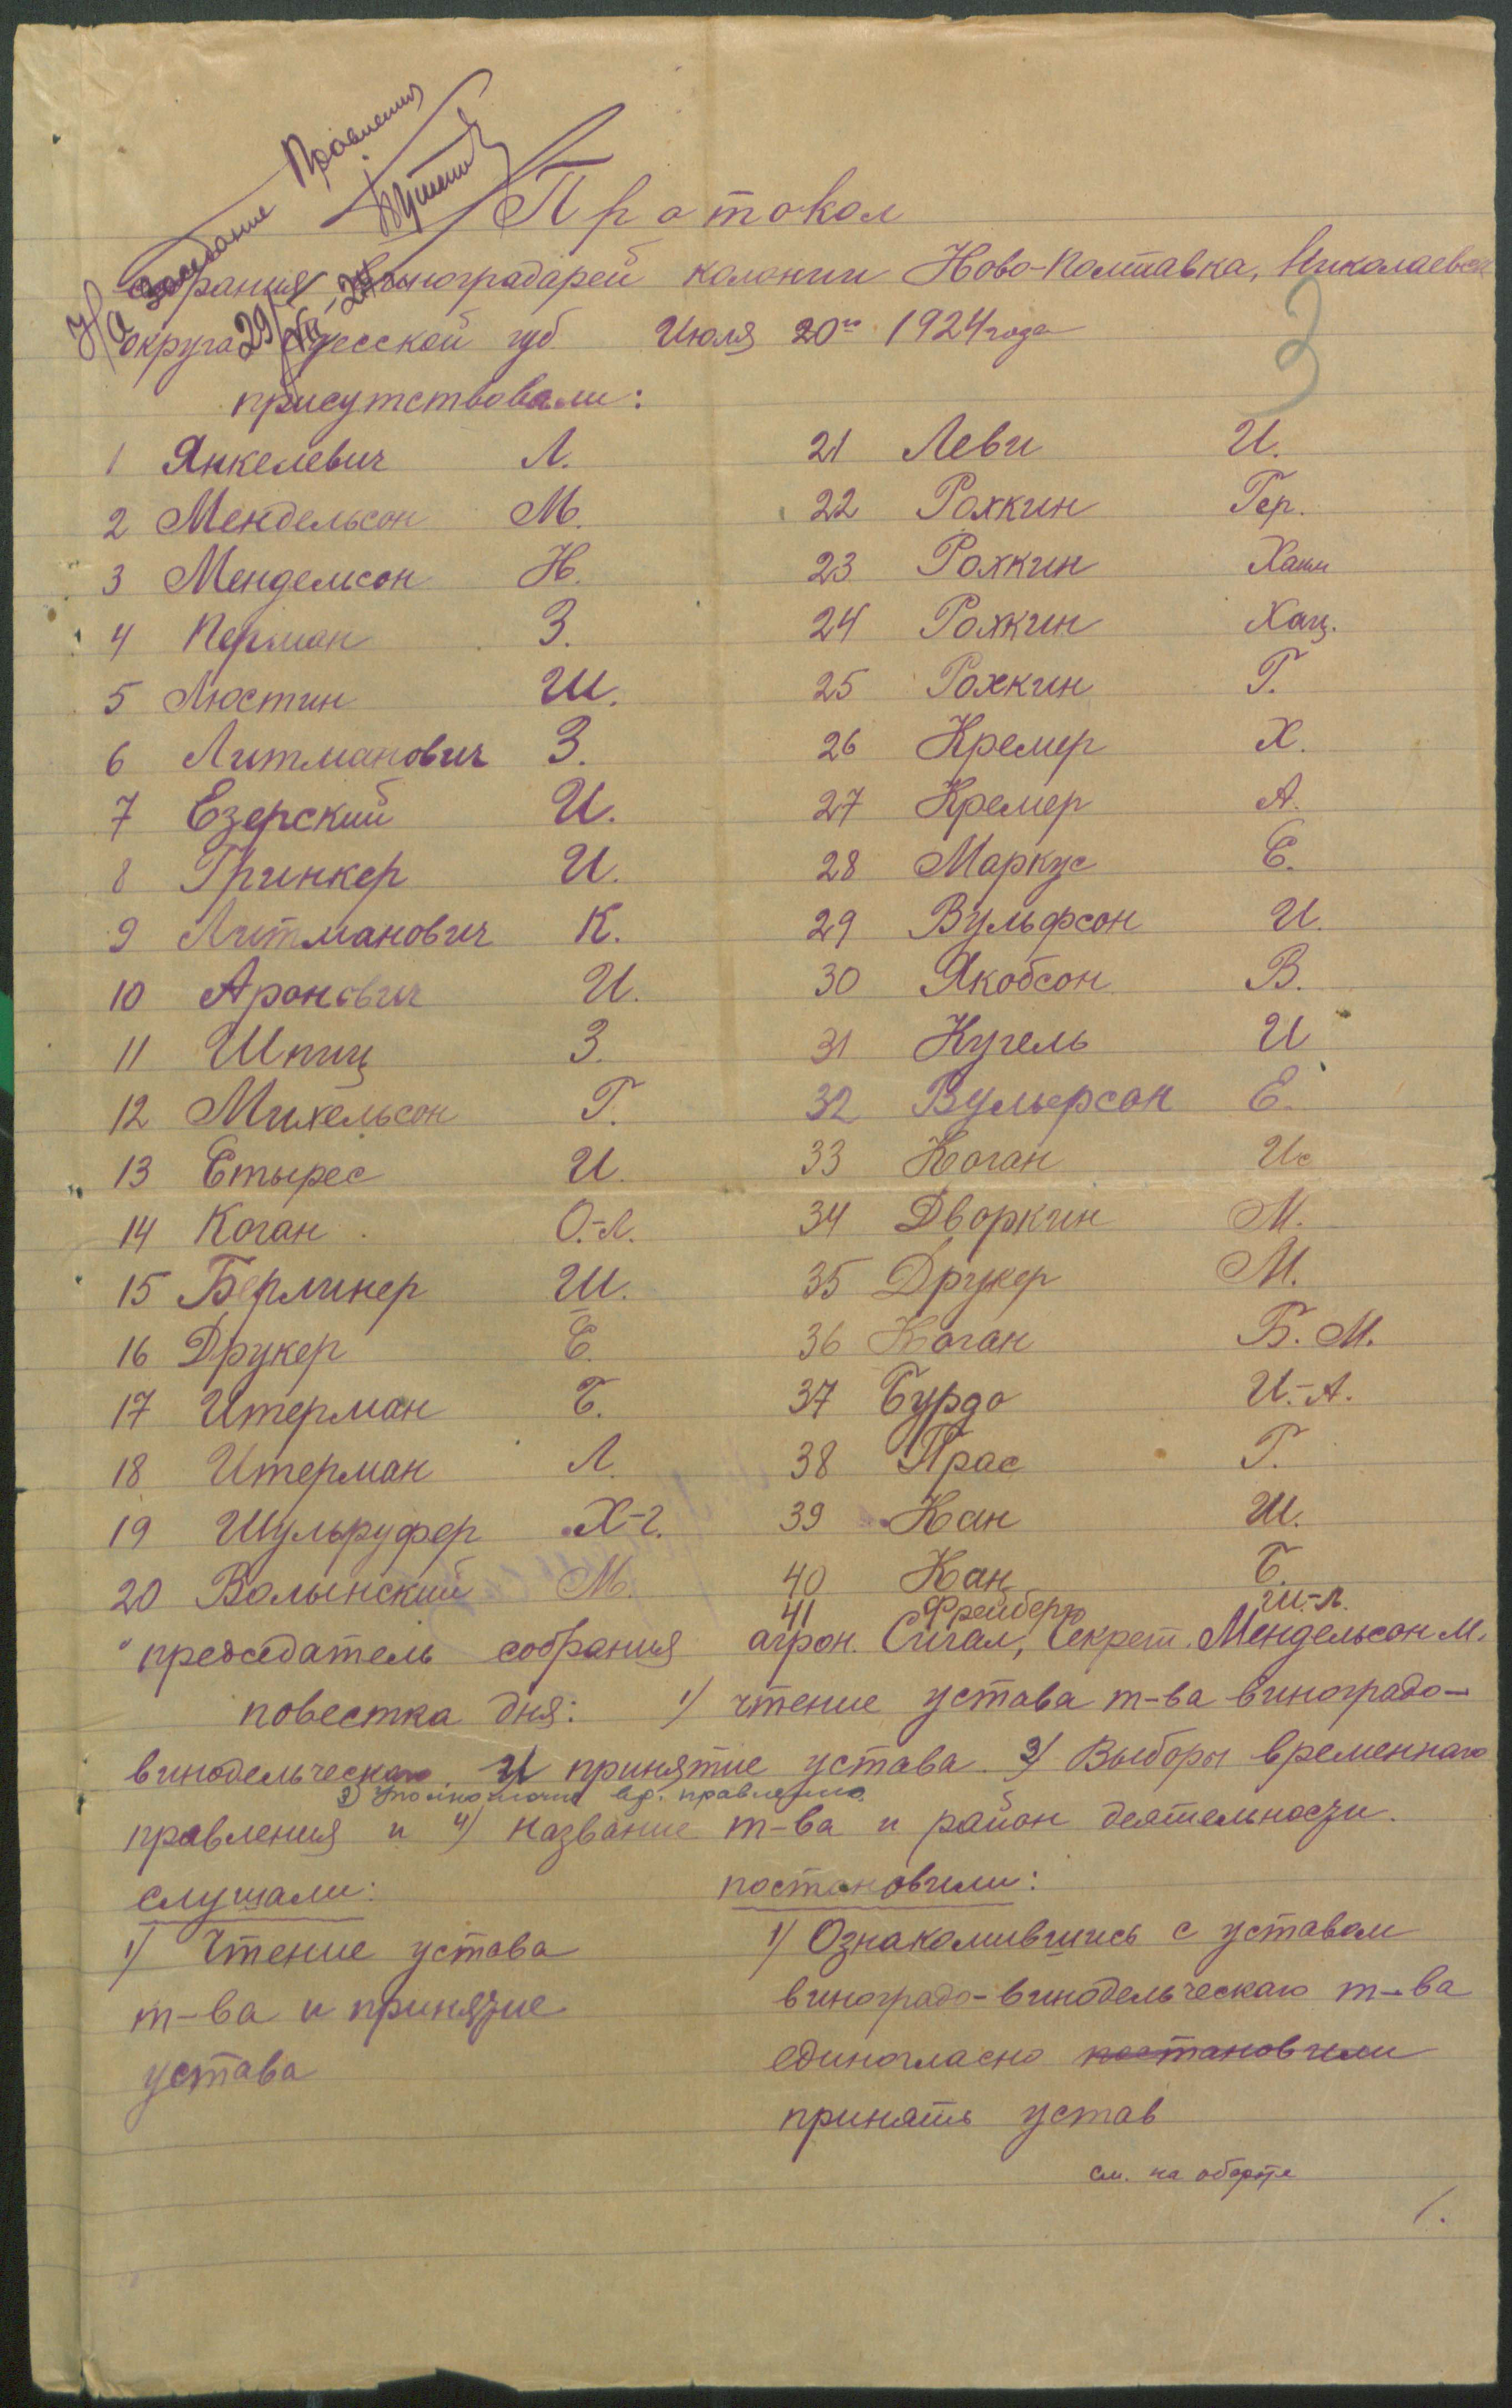 На заседание Правления
29/VII-24
Протокол
собрания виноградарей колонии Ново-Полтавка, Николаевск
округа Одесской губ Июля 20го 1924 года
3
присутствовали:
1 Янкелевич Л.
2 Мендельсон М.
3 Мендельсон Н.
4 Перман З.
5 Люстин Ш.
6 Литманович З.
7 Езерский И.
8 Гринкер И.
9 Литманович К.
10 Аронович И.
11 Шпиц З.
12 Михельсон Г.
13 Етырес И.
14 Коган О.-Л.
15 Берлинер Ш.
16 Друкер Е.
17 Итерман Б.
18 Итерман Л.
19 Шульруфер Х-г.
20 Волынский М.
21 Леви И.
22 Рохкин Гер.
23 Рохкин Хаим
24 Рохкин Хац.
25 Рохкин Г.
26 Кремер Х.
27 Кремер А.
28 Маркус Е.
29 Вульфсон И.
30 Якобсон В.
31 Кугель И
32 Вульфсон Е.
33 Коган Ис
34 Дворкин М.
35 Друкер М.
36 Коган Б. М.
37 Бурдо И.-А.
38 Прас Г.
39 Кан Ш.
40 Кан Б.
41 Фрейберг Ш.-Л.
председатель собрания агрон. Сигал, Секрет. Мендельсон М.
повестка дня: 1) чтение устава т-ва виноградо-
винодельческаго и принятие устава. 2) Выборы временнаго
3) Уполномочие вр. правлению
правления и 4) название т-ва и район деятельности.
слушали:
1) Чтение устава
т-ва и принятие
устава
постановили:
1) Ознакомившись с уставом
виноградо-винодельческаго т-ва
единогласно постановили
принять устав
см. на обороте
1.